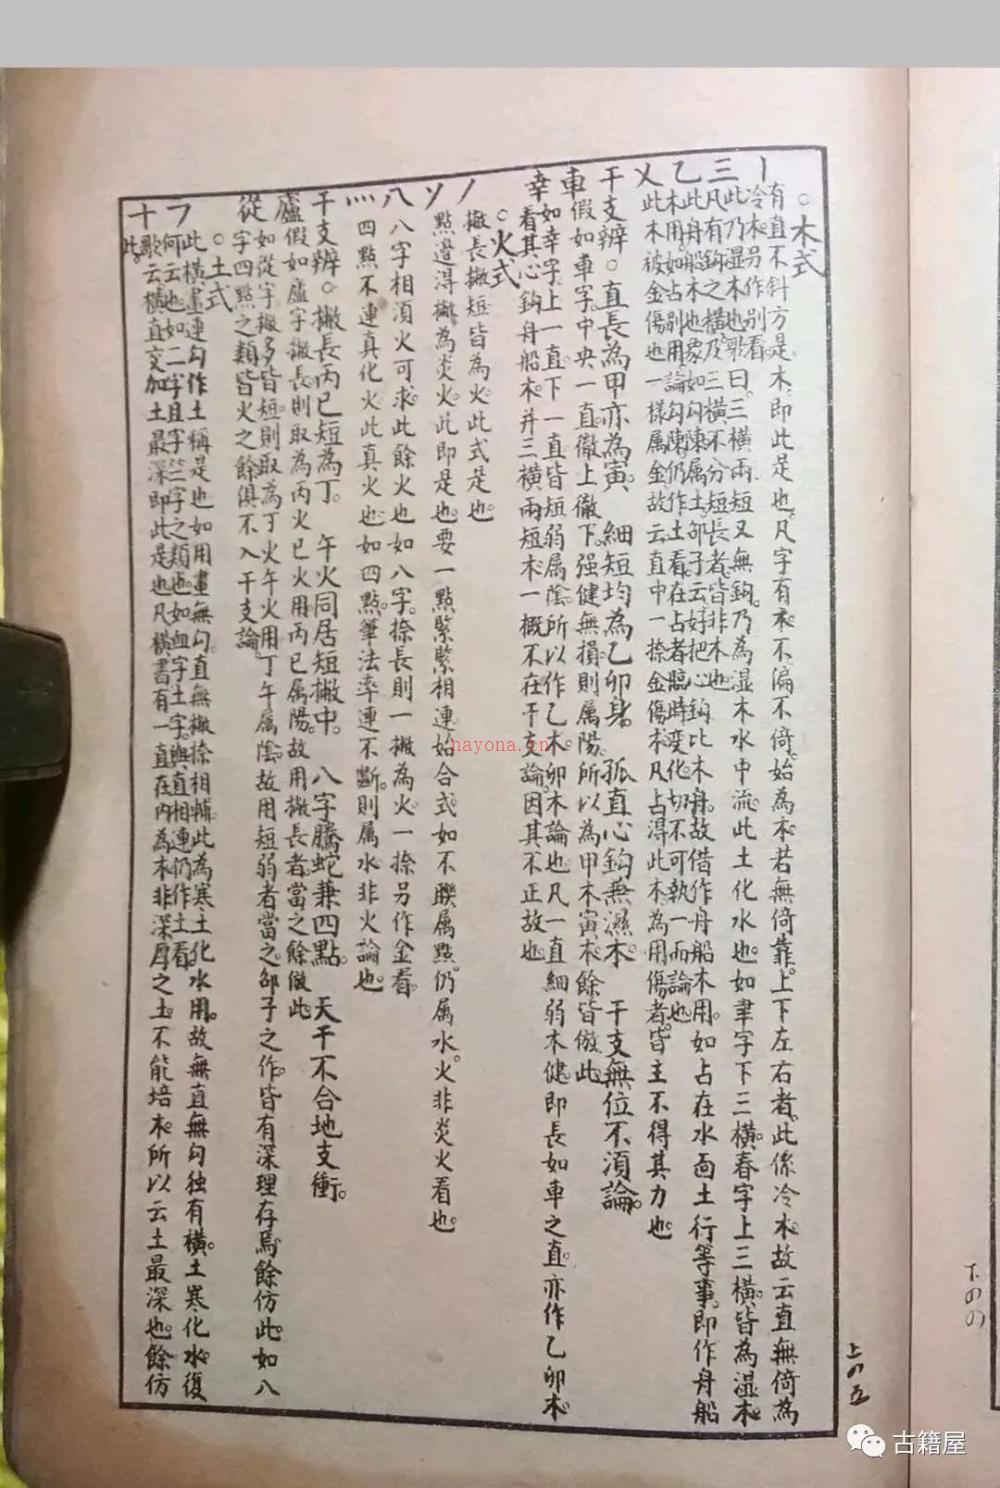 ○木式
丨 有直不斜方是木。即此是也。凡字有木。不偏不倚。始為木。若無倚靠。上下左右者。此係冷木。故云直無倚為冷木。另作別看。
三 此乃湿木也。歌曰。三橫兩短又無鈎。乃為湿木水中流。此土化水也。如聿字下三橫。春字上三橫。皆為湿木。凡有鈎之橫。及三橫不分短長者。皆非木也。
乙 此舟船木也。象如勾陳属土。邵子云。好把心鈎比木舟。故借作舟船木用。如占在水面土行等事。即作舟船木用。如占別用。論勾陳仍作土看。在占者臨時变化。切不可執一而論也。
乂 此木被金傷也。一樣属金。故云直中一捺金傷木。凡占得此木為用傷者。皆主不得其力也。
干支辨。○直長為甲亦為寅。 細短均為乙卯身。 孤直心鈎兼濕木。 干支無位不須論。
車 假如車字。中央一直。徹上徹下。强健無損。則属陽。所以為甲木寅木。餘皆倣此。
幸 如幸字。上一直。下一直。皆短弱属陰。所以作乙木。卯木論也。凡一直細弱木健。即長如車之直。亦作乙卯木看。其心鈎舟船木。并三橫兩短木。一概不在干支論。因其不正故也。
○火式
丿 撇長撇短皆為火。此式是也。
ソ 點邊得撇為炎火。此即是也。要一點緊緊相連。始合式。如不聯属點。仍属水。火非炎火看也。
八 八字相須火可求。此餘火也。如八字。捺長則一撇為火。一捺另作金看。
灬 四點不連真化火。此真火也。如四點。筆法率連不斷。則属水。非火論也。
干支辨。○撇長丙巳短為丁。 午火同居短撇中。 八字騰蛇兼四點。 天干不合地支衝。
廬 假如廬字撇長。則取為丙火巳火用。丙巳属陽。故用撇長者當之。餘倣此
從 如從字。撇多皆短。則取為丁火午火用。丁午属陰。故用短弱者當之。邵子之作。皆有深理存焉。餘仿此。如八字四點之類。皆火之餘。俱不入干支論。
○土式
㇇ 此橫畫連勾作土稱是也。如用畫無勾。直無撇捺相輔。此為寒土化水用。故無直無勾独有橫。土寒化水。復何云也。如二字且字竺字之類。也如血字土字。與直相連。仍作土看。
十 歌云。橫直交加土最深。即此是也。凡橫書有一直在內。為木非深厚之土。不能培木。所以云土最深也。餘仿此。
上の五
下のの
hayona.cn
古籍屋